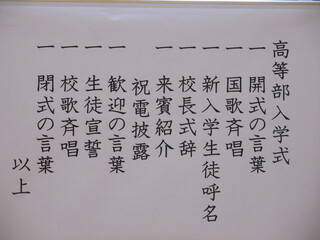 高等部入学式
一 開式の言葉
一 国歌斉唱
一 新入学生徒呼名
一 校長式辞
一 来賓紹介
祝電披露
一 歓迎の言葉
一 生徒宣誓
一 校歌斉唱
一 閉式の言葉
以上